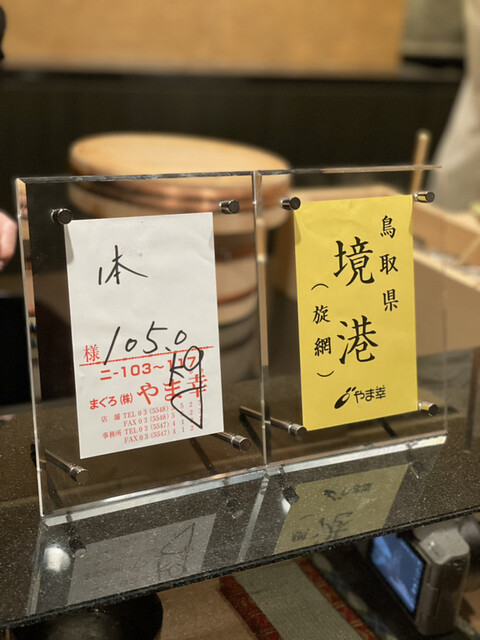 本
様
105.0
kg
ニ-103~117
まぐろ(株)やま幸
店舗 TEL 03(5548)
FAX 03(5548)
事務所 TEL 03(5547)
FAX 03(5547)
鳥取県
境港
(旋網)
やま幸